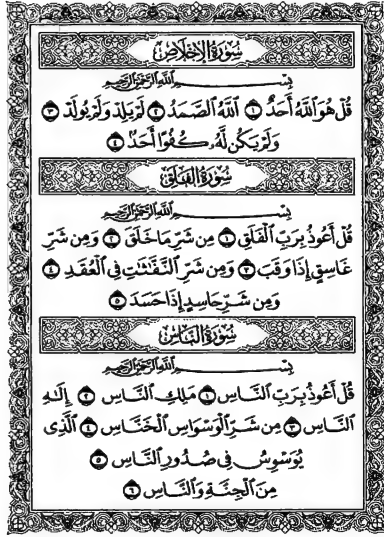 سُورَةُ الإِخْلَاصِ
بِسْمِ اللَّهِ الرَّحْمَٰنِ الرَّحِيمِ
قُلْ هُوَ اللَّهُ أَحَدٌ ١ اللَّهُ الصَّمَدُ ٢ لَمْ يَلِدْ وَلَمْ يُولَدْ ٣
وَلَمْ يَكُن لَّهُۥ كُفُوًا أَحَدٌۢ ٤
سُورَةُ الْفَلَقِ
بِسْمِ اللَّهِ الرَّحْمَٰنِ الرَّحِيمِ
قُلْ أَعُوذُ بِرَبِّ الْفَلَقِ ١ مِن شَرِّ مَا خَلَقَ ٢ وَمِن شَرِّ
غَاسِقٍ إِذَا وَقَبَ ٣ وَمِن شَرِّ النَّفَّٰثَٰتِ فِي الْعُقَدِ ٤
وَمِن شَرِّ حَاسِدٍ إِذَا حَسَدَ ٥
سُورَةُ النَّاسِ
بِسْمِ اللَّهِ الرَّحْمَٰنِ الرَّحِيمِ
قُلْ أَعُوذُ بِرَبِّ النَّاسِ ١ مَلِكِ النَّاسِ ٢ إِلَٰهِ
النَّاسِ ٣ مِن شَرِّ الْوَسْوَاسِ الْخَنَّاسِ ٤ الَّذِي
يُوَسْوِسُ فِي صُدُورِ النَّاسِ ٥
مِنَ الْجِنَّةِ وَالنَّاسِ ٦